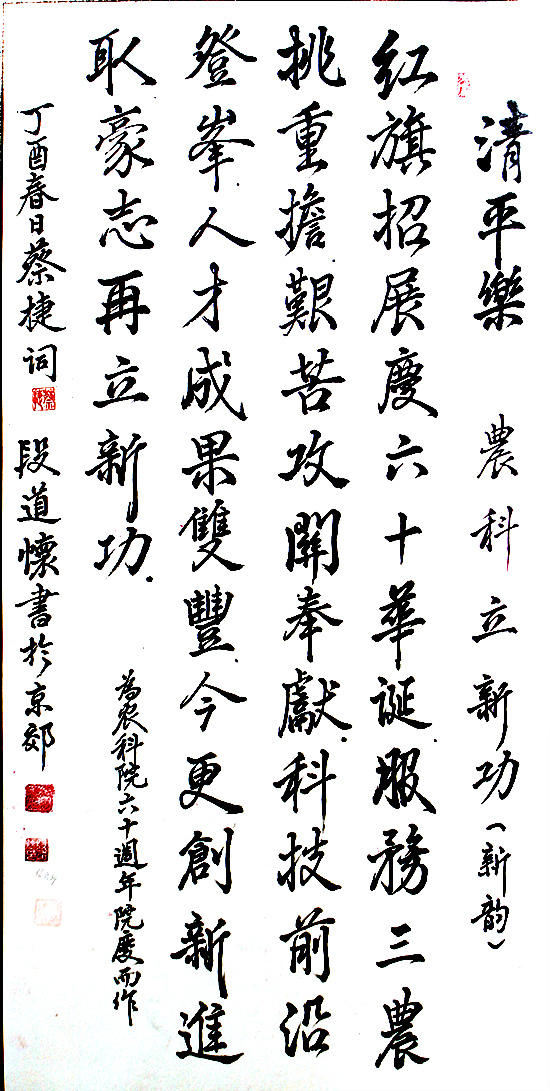 清平樂 農科立新功（新韵）
红旗招展慶六十華誕.服務三農
挑重擔.艱苦攻關奉獻.科技前沿
登峯.人才成果雙豐.今更創新進
取豪志再立新功.
為农科院六十週年院慶而作
丁酉春日蔡捷词
段道懷書於京郊